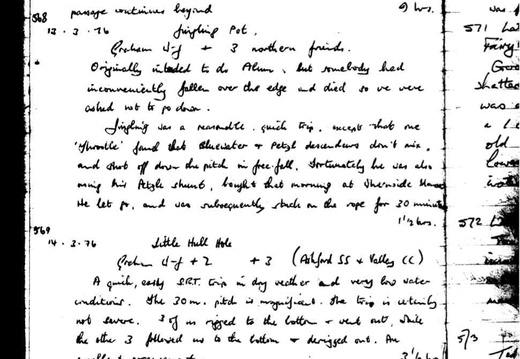 passage continues beyond 9 hrs.
568
13.3.76 Jingling Pot.
Graham W-f + 3 northern friends.
Originally intended to do Alum, but somebody had
inconveniently fallen over the edge and died so we were
asked not to go down.
Jingling was a reasonable, quick trip, except that one
'Throstle' found that Bluewater + Petzl descendeurs don't mix,
and shot off down the pitch in free-fall. Fortunately he was also
using his Petzl shunt, bought that morning at Inverside Manor
He let go, and was subsequently stuck on the rope for 30 minutes
1½ hrs.
569
14.3.76 Little Hull Hole
Graham W-f + 2 + 3 (Ashford SS + Valley CC)
A quick, easy S.R.T. trip in dry weather and very low water
conditions. The 30m. pitch is magnificent. The trip is certainly
not severe. 3 of us rigged to the bottom + went out, while
the other 3 followed us to the bottom + derigged out. An
571
Fairy
shatte
was a
a
old
lower
572
573